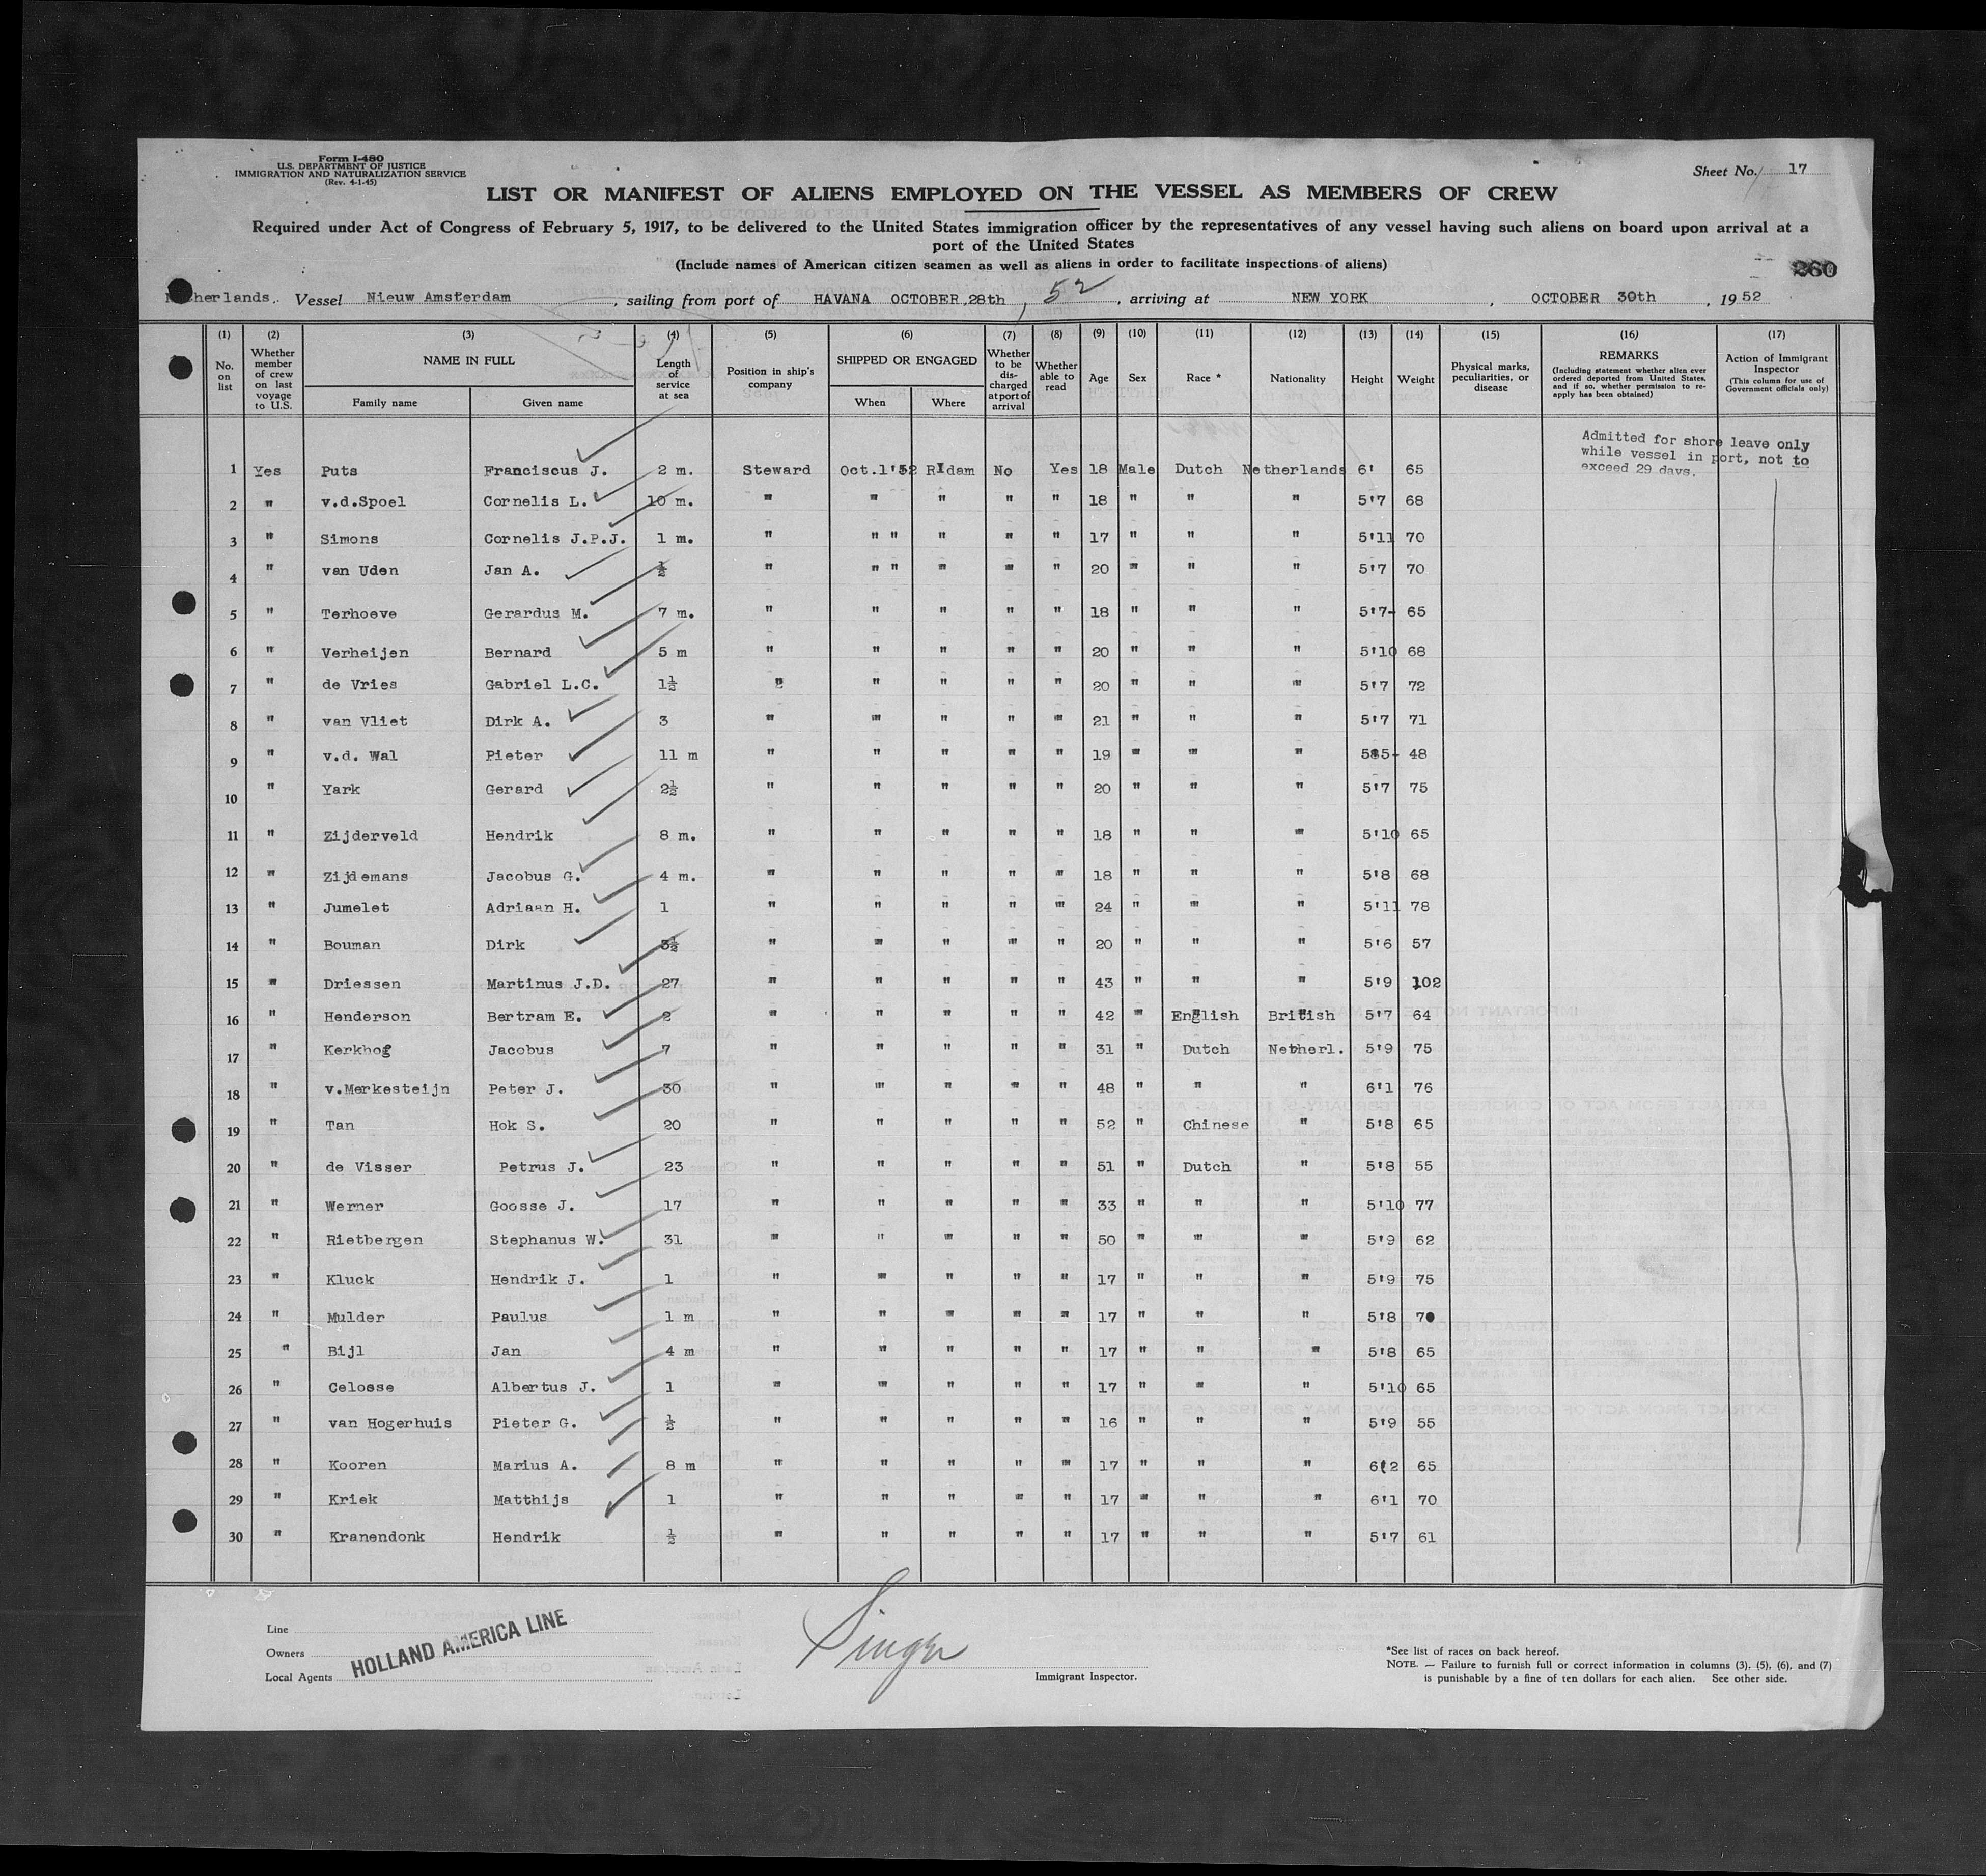 Form I-480
U.S. DEPARTMENT OF JUSTICE
IMMIGRATION AND NATURALIZATION SERVICE
(Rev. 4-1-45)
Sheet No. 17
LIST OR MANIFEST OF ALIENS EMPLOYED ON THE VESSEL AS MEMBERS OF CREW
Required under Act of Congress of February 5, 1917, to be delivered to the United States immigration officer by the representatives of any vessel having such aliens on board upon arrival at a
port of the United States
(Include names of American citizen seamen as well as aliens in order to facilitate inspections of aliens)
260
Netherlands. Vessel Nieuw Amsterdam, sailing from port of HAVANA OCTOBER,28th, 52, arriving at NEW YORK, OCTOBER 30th, 1952
(1) (2) (3) (4) (5) (6) (7) (8) (9) (10) (11) (12) (13) (14) (15) (16) (17)
No. on list
Whether member of crew on last voyage to U.S.
NAME IN FULL
Family name Given name
Length of service at sea
Position in ship's company
SHIPPED OR ENGAGED
When Where
Whether to be discharged at port of arrival
Whether able to read
Age
Sex
Race *
Nationality
Height
Weight
Physical marks, peculiarities, or disease
REMARKS
(Including statement whether alien ever ordered deported from United States, and if so, whether permission to re-apply has been obtained)
Action of Immigrant Inspector
(This column for use of Government officials only)
Admitted for shore leave only
while vessel in port, not to
exceed 29 days.
1 Yes Puts Franciscus J. 2 m. Steward Oct.1'52 R'dam No Yes 18 Male Dutch Netherlands 6' 65
2 " v.d.Spoel Cornelis L. 10 m. " " " " " 18 " " " 5'7 68
3 " Simons Cornelis J.P.J. 1 m. " " " " " " 17 " " " 5'11 70
4 " van Uden Jan A. ½ " " " " " " 20 " " " 5'7 70
5 " Terhoeve Gerardus M. 7 m. " " " " " 18 " " " 5'7- 65
6 " Verheijen Bernard 5 m " " " " " 20 " " " 5'10 68
7 " de Vries Gabriel L.C. 1½ " " " " " 20 " " " 5'7 72
8 " van Vliet Dirk A. 3 " " " " " 21 " " " 5'7 71
9 " v.d. Wal Pieter 11 m " " " " " 19 " " " 5'5- 48
10 " Yark Gerard 2½ " " " " " 20 " " " 5'7 75
11 " Zijderveld Hendrik 8 m. " " " " " 18 " " " 5'10 65
12 " Zijdemans Jacobus G. 4 m. " " " " " 18 " " " 5'8 68
13 " Jumelet Adriaan H. 1 " " " " " 24 " " " 5'11 78
14 " Bouman Dirk 3½ " " " " " 20 " " " 5'6 57
15 " Driessen Martinus J.D. 27 " " " " " 43 " " " 5'9 102
16 " Henderson Bertram E. 2 " " " " " 42 " English British 5'7 64
17 " Kerkhof Jacobus 7 " " " " " 31 " Dutch Netherl. 5'9 75
18 " v.Merkesteijn Peter J. 30 " " " " " 48 " " " 6'1 76
19 " Tan Hok S. 20 " " " " " 52 " Chinese " 5'8 65
20 " de Visser Petrus J. 23 " " " " " 51 " Dutch " 5'8 55
21 " Werner Goosse J. 17 " " " " " 33 " " " 5'10 77
22 " Rietbergen Stephanus W. 31 " " " " " 50 " " " 5'9 62
23 " Kluck Hendrik J. 1 " " " " " 17 " " " 5'9 75
24 " Mulder Paulus 1 m " " " " " 17 " " " 5'8 70
25 " Bijl Jan 4 m " " " " " 17 " " " 5'8 65
26 " Celosse Albertus J. 1 " " " " " 17 " " " 5'10 65
27 " van Hogerhuis Pieter G. ½ " " " " " 16 " " " 5'9 55
28 " Kooren Marius A. 8 m " " " " " 17 " " " 6'2 65
29 " Kriek Matthijs 1 " " " " " 17 " " " 6'1 70
30 " Kranendonk Hendrik ½ " " " " " 17 " " " 5'7 61
Line
Owners
Local Agents
HOLLAND AMERICA LINE
Singer
Immigrant Inspector.
*See list of races on back hereof.
NOTE. — Failure to furnish full or correct information in columns (3), (5), (6), and (7)
is punishable by a fine of ten dollars for each alien. See other side.